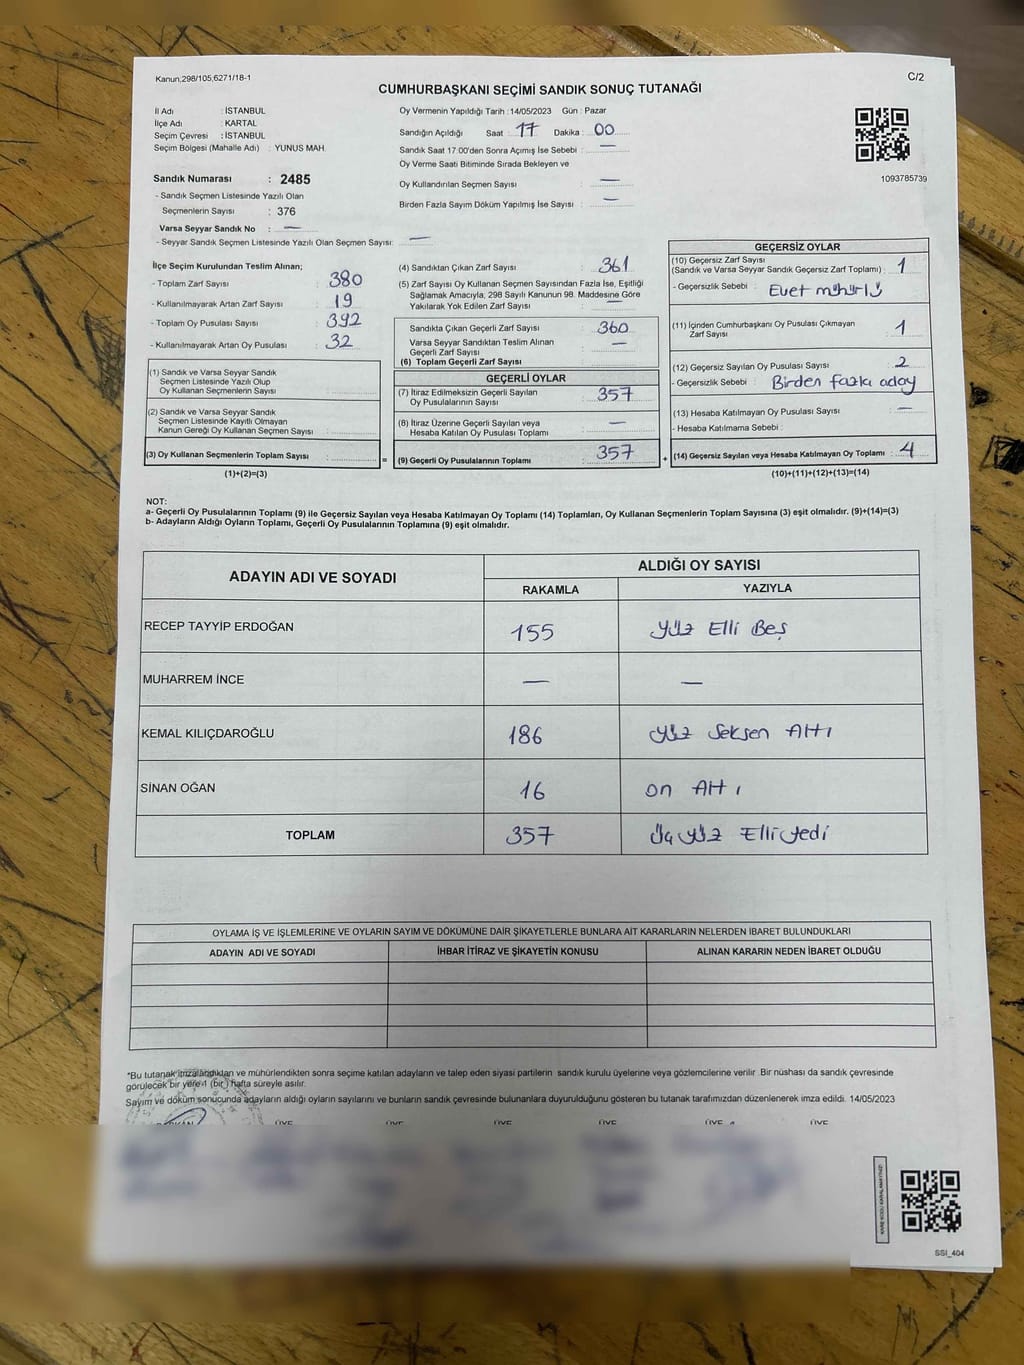 Kanun;298/105;6271/18-1
C/2
CUMHURBAŞKANI SEÇİMİ SANDIK SONUÇ TUTANAĞI
İl Adı : İSTANBUL
İlçe Adı : KARTAL
Seçim Çevresi : İSTANBUL
Seçim Bölgesi (Mahalle Adı) : YUNUS MAH.
Sandık Numarası : 2485
- Sandık Seçmen Listesinde Yazılı Olan
Seçmenlerin Sayısı : 376
Varsa Seyyar Sandık No : —
- Seyyar Sandık Seçmen Listesinde Yazılı Olan Seçmen Sayısı: —
Oy Vermenin Yapıldığı Tarih : 14/05/2023 Gün : Pazar
Sandığın Açıldığı Saat : 17 Dakika : 00
Sandık Saat 17:00'den Sonra Açımış İse Sebebi : —
Oy Verme Saati Bitiminde Sırada Bekleyen ve
Oy Kullandırılan Seçmen Sayısı : —
Birden Fazla Sayım Döküm Yapılmış İse Sayısı : —
1093785739
İlçe Seçim Kurulundan Teslim Alınan;
- Toplam Zarf Sayısı : 380
- Kullanılmayarak Artan Zarf Sayısı : 19
- Toplam Oy Pusulası Sayısı : 392
- Kullanılmayarak Artan Oy Pusulası : 32
(1) Sandık ve Varsa Seyyar Sandık
Seçmen Listesinde Yazılı Olup
Oy Kullanan Seçmenlerin Sayısı :
(2) Sandık ve Varsa Seyyar Sandık
Seçmen Listesinde Kayıtlı Olmayan
Kanun Gereği Oy Kullanan Seçmen Sayısı :
(3) Oy Kullanan Seçmenlerin Toplam Sayısı :
(1)+(2)=(3)
=
(4) Sandıktan Çıkan Zarf Sayısı : 361
(5) Zarf Sayısı Oy Kullanan Seçmen Sayısından Fazla İse, Eşitliği
Sağlamak Amacıyla, 298 Sayılı Kanunun 98. Maddesine Göre
Yakılarak Yok Edilen Zarf Sayısı : —
Sandıkta Çıkan Geçerli Zarf Sayısı : 360
Varsa Seyyar Sandıktan Teslim Alınan
Geçerli Zarf Sayısı : —
(6) Toplam Geçerli Zarf Sayısı
GEÇERLİ OYLAR
(7) İtiraz Edilmeksizin Geçerli Sayılan
Oy Pusulalarının Sayısı : 357
(8) İtiraz Üzerine Geçerli Sayılan veya
Hesaba Katılan Oy Pusulası Toplamı : —
(9) Geçerli Oy Pusulalarının Toplamı : 357
+
GEÇERSİZ OYLAR
(10) Geçersiz Zarf Sayısı
(Sandık ve Varsa Seyyar Sandık Geçersiz Zarf Toplamı) : 1
- Geçersizlik Sebebi : Evet mühürlü
(11) İçinden Cumhurbaşkanı Oy Pusulası Çıkmayan
Zarf Sayısı : 1
(12) Geçersiz Sayılan Oy Pusulası Sayısı : 2
- Geçersizlik Sebebi : Birden fazla aday
(13) Hesaba Katılmayan Oy Pusulası Sayısı : —
- Hesaba Katılmama Sebebi :
(14) Geçersiz Sayılan veya Hesaba Katılmayan Oy Toplamı : 4
(10)+(11)+(12)+(13)=(14)
NOT:
a- Geçerli Oy Pusulalarının Toplamı (9) ile Geçersiz Sayılan veya Hesaba Katılmayan Oy Toplamı (14) Toplamları, Oy Kullanan Seçmenlerin Toplam Sayısına (3) eşit olmalıdır. (9)+(14)=(3)
b- Adayların Aldığı Oyların Toplamı, Geçerli Oy Pusulalarının Toplamına (9) eşit olmalıdır.
ADAYIN ADI VE SOYADI
ALDIĞI OY SAYISI
RAKAMLA YAZIYLA
RECEP TAYYİP ERDOĞAN 155 Yüz Elli Beş
MUHARREM İNCE — —
KEMAL KILIÇDAROĞLU 186 Yüz Seksen Altı
SİNAN OĞAN 16 On Altı
TOPLAM 357 Üç Yüz Elli Yedi
OYLAMA İŞ VE İŞLEMLERİNE VE OYLARIN SAYIM VE DÖKÜMÜNE DAİR ŞİKAYETLERLE BUNLARA AİT KARARLARIN NELERDEN İBARET BULUNDUKLARI
ADAYIN ADI VE SOYADI İHBAR İTİRAZ VE ŞİKAYETİN KONUSU ALINAN KARARIN NEDEN İBARET OLDUĞU
*Bu tutanak imzalandıktan ve mühürlendikten sonra seçime katılan adayların ve talep eden siyasi partilerin sandık kurulu üyelerine veya gözlemcilerine verilir. Bir nüshası da sandık çevresinde
görülecek bir yere 1 (bir) hafta süreyle asılır.
Sayım ve döküm sonucunda adayların aldığı oyların sayılarını ve bunların sandık çevresinde bulunanlara duyurulduğunu gösteren bu tutanak tarafımızdan düzenlenerek imza edildi. 14/05/2023
BAŞKAN ÜYE ÜYE ÜYE ÜYE ÜYE ÜYE
SSİ_404